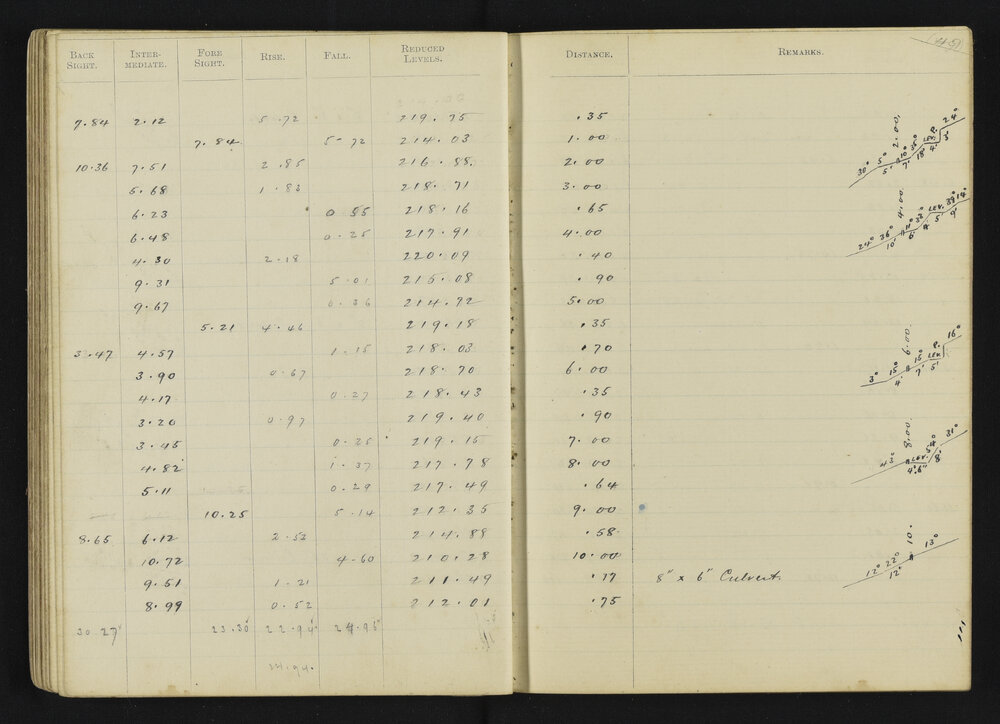 BACK SIGHT. INTER-MEDIATE. FORE SIGHT. RISE. FALL. REDUCED LEVELS. DISTANCE. REMARKS.
(45)
7.84 2.12 5.72 219.75 .35
7.84 5.72 214.03 1.00
10.36 7.51 2.85 216.88 2.00
5.68 1.83 218.71 3.00
6.23 0.55 218.16 .65
6.48 0.25 217.91 4.00
4.30 2.18 220.09 .40
9.31 5.01 215.08 .90
9.67 0.36 214.72 5.00
5.21 4.46 219.18 .35
3.47 4.57 1.15 218.03 .70
3.90 0.67 218.70 6.00
4.17 0.27 218.43 .35
3.20 0.97 219.40 .90
3.45 0.25 219.15 7.00
4.82 1.37 217.78 8.00
5.11 0.29 217.49 .64
10.25 5.14 212.35 9.00
8.65 6.12 2.53 214.88 .58
10.72 4.60 210.28 10.00
9.51 1.21 211.49 .17 8" x 6" Culvert.
8.99 0.52 212.01 .75
30.27 23.30 22.94 24.95
34.94
2.00
30° 5° 10° 24°
5' 7' 18' 4' 3'
4.00
24° 36° 11° 33° LEV. 39° 14°
10' 6' 5' 9'
6.00
3° 15° 15° LEV. P. 16°
4' 7' 5'
8.00
43° LEV. 31°
4'.6" 8'
10.
12° 22° 13°
12'